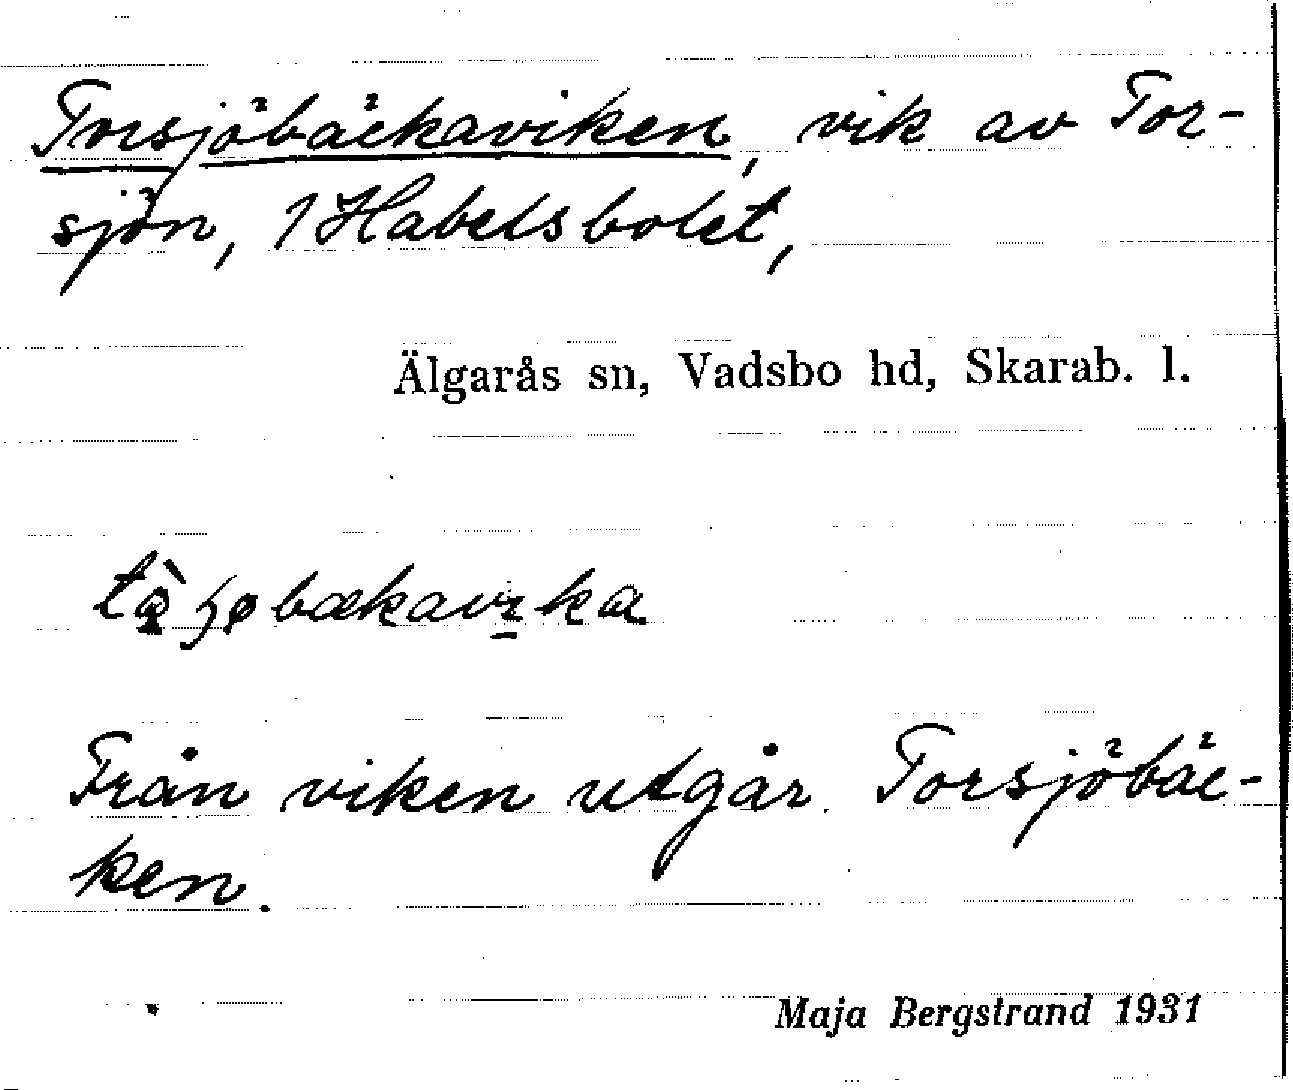 Torsjöbäckaviken, vik av Tor-
sjön, 1 Habelsbolet,
Älgarås sn, Vadsbo hd, Skarab. l.
Från viken utgår Torsjöbäc-
ken.
Maja Bergstrand 1931